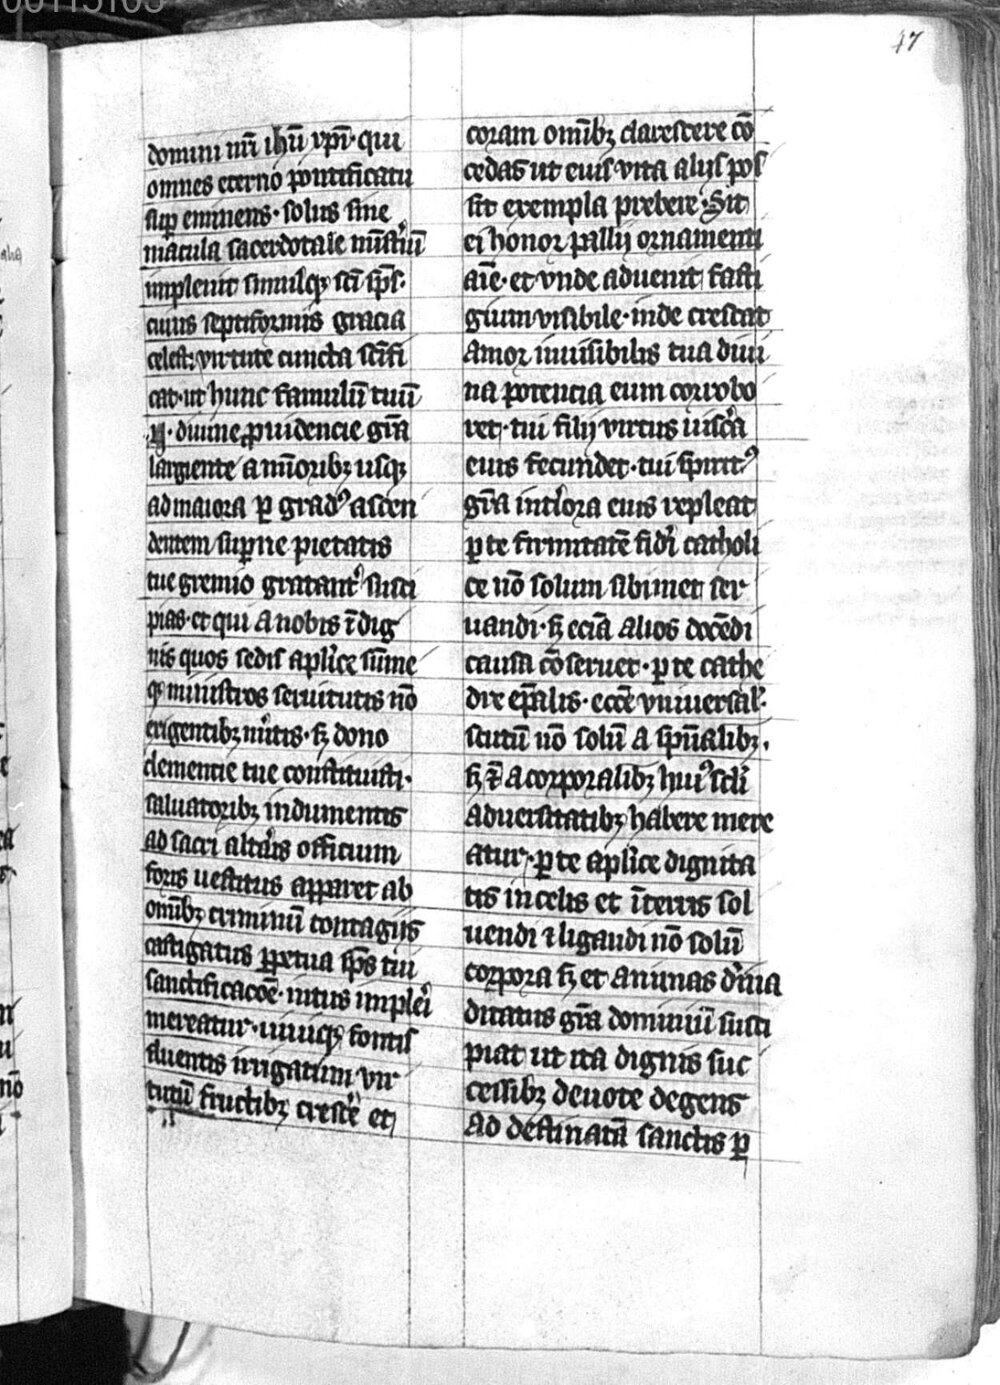 47
domini nr̄i ihū xp̄i· qui
omnes eterno pontificatu
suꝑ eminens· solus sine
macula sacerdotale mīst̾iū
impleuit simulqꝫ sc̄i sp̄s·
cuius septiformis gracia
celesti virtute cuncta sc̄ifi
cat· ut hunc famulū tuū
N· diuine ꝓuidencie gr̄a
largiente a mīoribꝫ usqꝫ
ad maiora ꝑ gradꝰ ascen
dentem suꝑne pietatis
tue gremio gratantᷣ susci
pias· et qui a nobis īdig
nis quos sedis aplīce sūme
qꝫ ministros seruitutis nō
exigentibꝫ mītis· sꝫ dono
clementie tue constituisti·
saluatoribꝫ indumentis
ad sacri altaris officium
foris uestitus apparet ab
om̄ibꝫ criminū contagiis
castigatus ꝑpetua sp̄s tui
sanctificacōe· intus impleri
mereatur· uiuiqꝫ fontis
fluentis irrigatum vir
tutū fructibꝫ cresce᷑ et
coram om̄ibꝫ clarescere cō
cedas ut eius vita alijs pos
sit exempla prebere· Sit
ei honor pallij ornamentū
aīe· et vnde aduenit fasti
gium visibile· inde crescat
amor inuisibilis tua diui
na potencia eum corrobo
ret· tui filij virtus uisc̾a
eius fecundet· tui spiritꝰ
gr̄a intͥora eius repleat
ꝑ te firmitatē fidei catholi
ce nō solum sibimet ser
uandi· sꝫ eciā alios docēdi
causa cōseruet· ꝑ te cathe
dre ep̄alis· ecc̄e vniuersal̾·
scutū nō solū a sp̄ualibꝫ·
sꝫ ⁊ a corporalibꝫ huiꝰ scl̄i
aduersitatibꝫ habere mere
atur· ꝑ te aplīce dignita
tis in celis et ī terris sol
uendi ⁊ ligandi nō solū
corpora sꝫ et animas dͥuia
ditatus gr̄a dominiū susci
piat ut ita dignis suc
cessibꝫ deuote degens
ad destinatā sanctis ꝑ